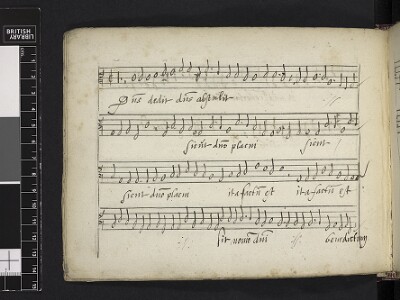 BRITISH
LIBRARY
Dn̄s dedit dn̄s abstulit
sicut dn̄o placui sicut
sicut dn̄o placui ita factū est ita factū est
sit nomē dn̄i benedictum